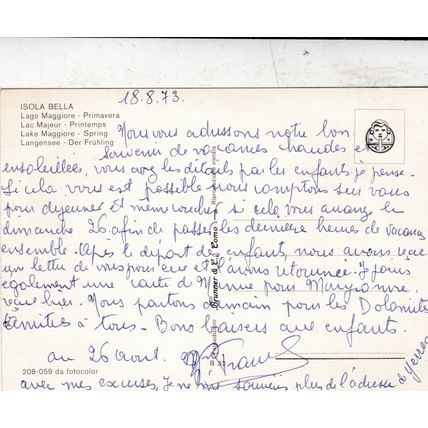 18.8.73.
ISOLA BELLA
Lago Maggiore · Primavera
Lac Majeur · Printemps
Lake Maggiore · Spring
Langensee · Der Frühling
Nous vous adressons notre bon
souvenir de vacances chaudes et
ensoleillées, vous avez les détails par les enfants je pense.
Si cela vous est possible nous comptons sur vous
pour déjeuner et même coucher si cela vous arrange le
dimanche 26 afin de passer les dernière heures de vacances
ensemble. Après le départ des enfants, nous avons reçu
un lettre de vous pour eux et l'avons retournée. Je joins
également une carte de pour
hier. Nous partons demain pour les Dolomites
Amitiés à tous. Bons baisers aux enfants.
au 26 août.
avec mes excuses, Je ne me souviens plus de l'adresse de Yerres
Brunner & C., Como
Riproduzione vietata
208-059 da fotocolor